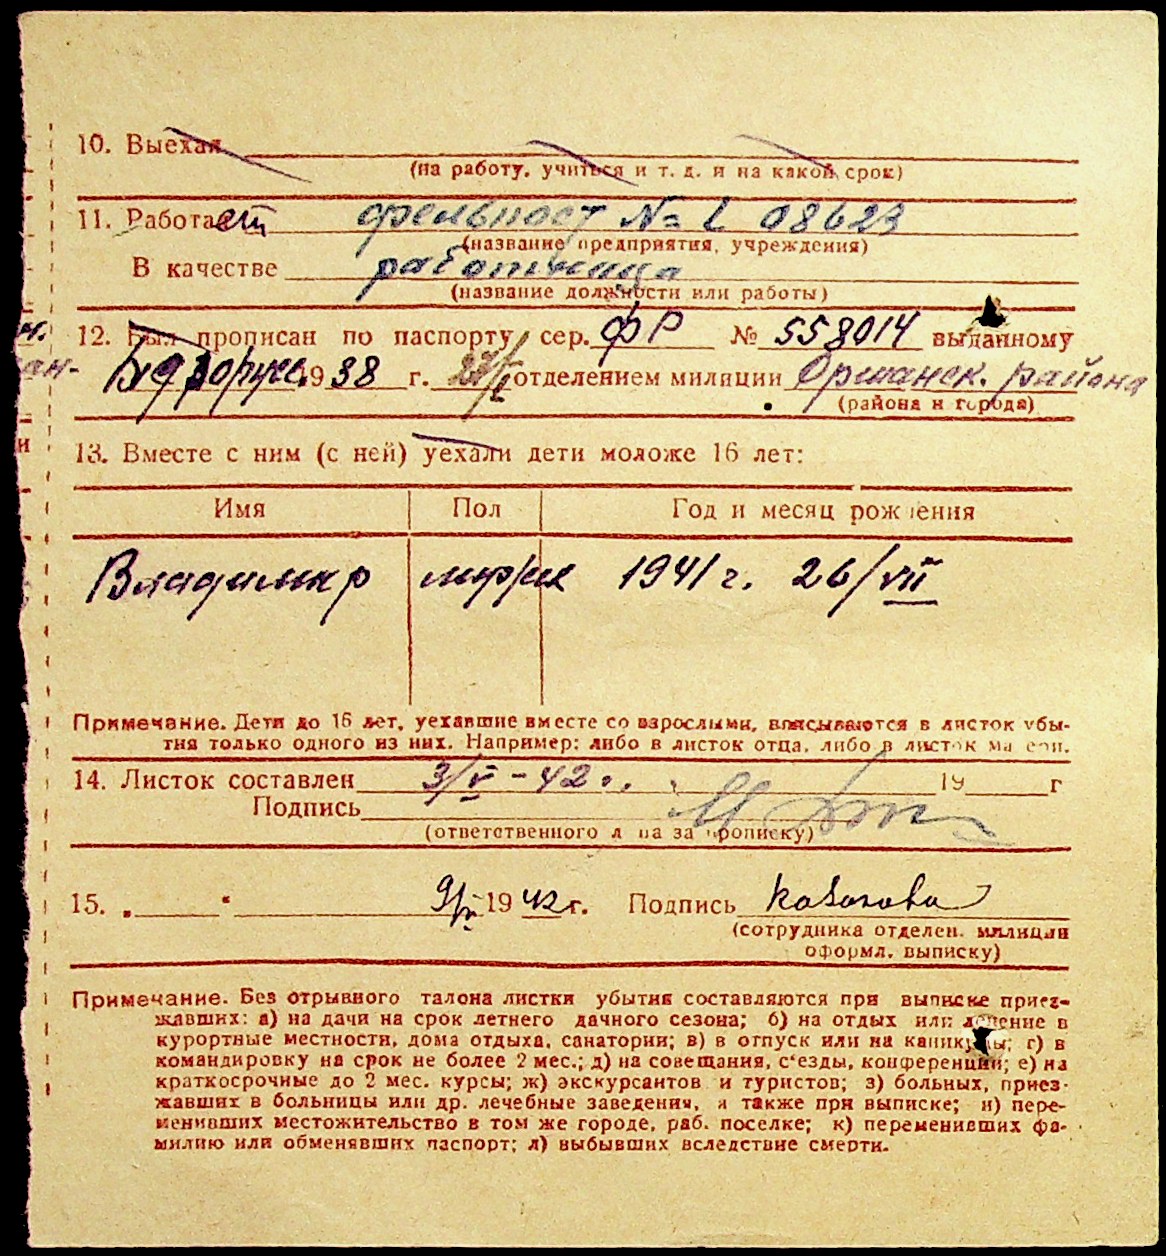 10. Выехал
(на работу, учиться и т. д. и на какой срок)
11. Работает фельпост № L 08623
(название предприятия, учреждения)
В качестве работница
(название должности или работы)
12. Был прописан по паспорту сер. ФР № 558014 выданному
1938 г. отделением милиции Оршанск. района
(района и города)
13. Вместе с ним (с ней) уехали дети моложе 16 лет:
Имя Пол Год и месяц рождения
Владимир муж 1941 г. 26/VII
Примечание. Дети до 16 лет, уехавшие вместе со взрослыми, вписываются в листок убы-
тия только одного из них. Например: либо в листок отца, либо в листок матери.
14. Листок составлен 3/V-42 г. 19 г
Подпись
(ответственного лица за прописку)
15. „ “ 9/V 1942 г. Подпись
(сотрудника отделен. милиции
оформл. выписку)
Примечание. Без отрывного талона листки убытия составляются при выписке приез-
жавших: а) на дачи на срок летнего дачного сезона; б) на отдых или лечение в
курортные местности, дома отдыха, санатории; в) в отпуск или на каникулы; г) в
командировку на срок не более 2 мес.; д) на совещания, с‘езды, конференции; е) на
краткосрочные до 2 мес. курсы; ж) экскурсантов и туристов; з) больных, приез-
жавших в больницы или др. лечебные заведения, а также при выписке; и) пере-
менивших местожительство в том же городе, раб. поселке; к) переменивших фа-
милию или обменявших паспорт; л) выбывших вследствие смерти.